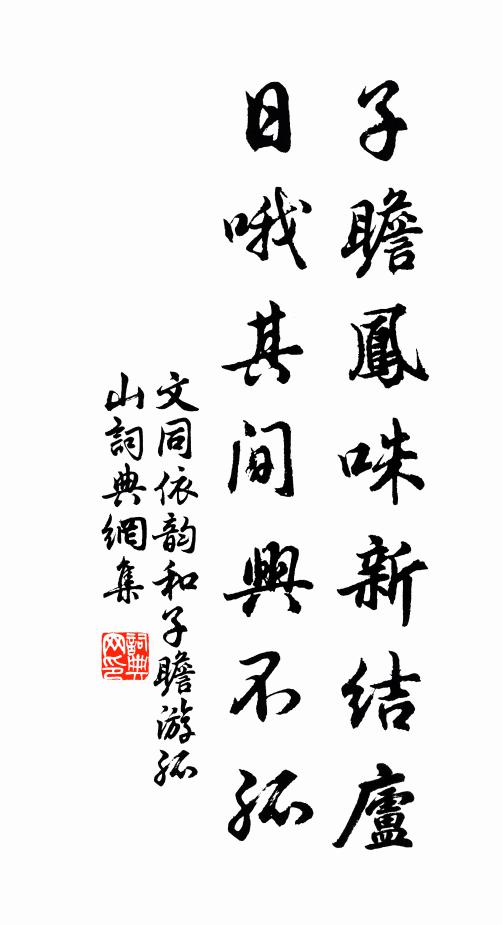 子瞻鳳咮新結廬
日哦其間興不孤
文同依韵和子瞻游孤
山詞典網集
詞典
网印